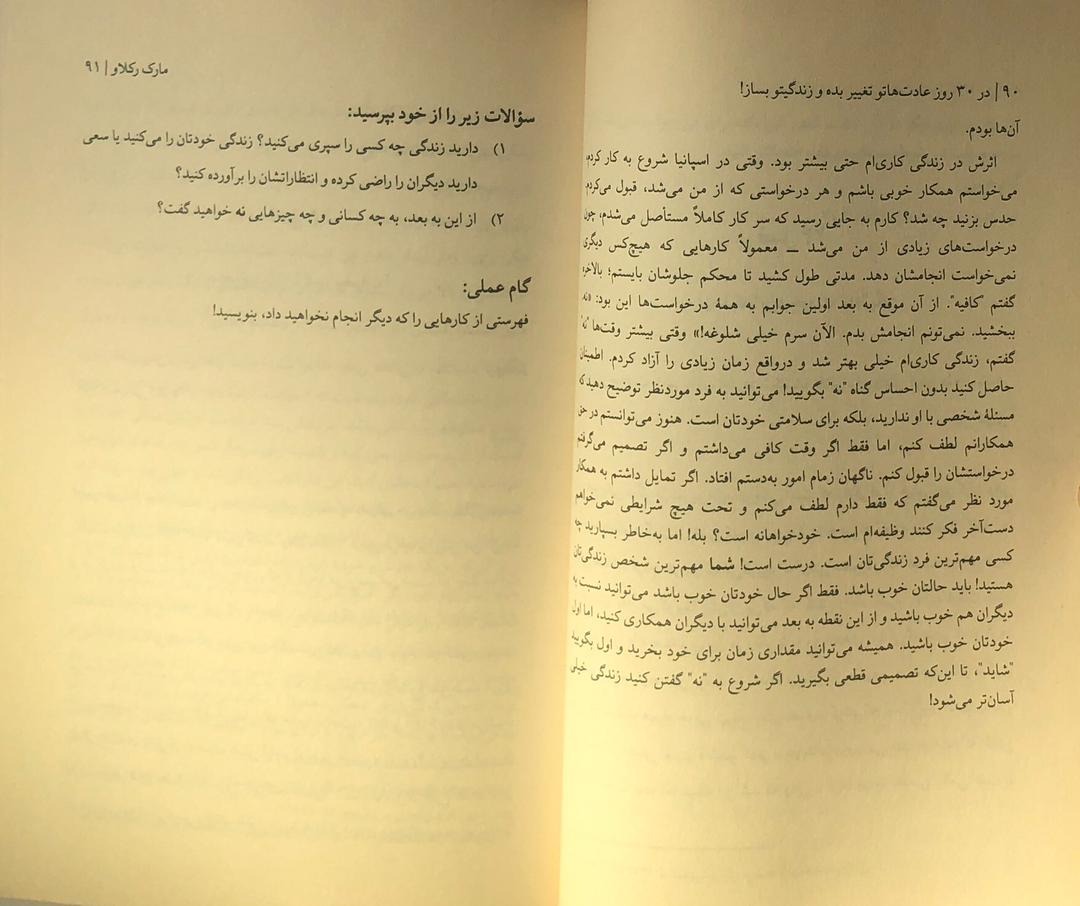 ۹۰ | در ۳۰ روز عادت‌هاتو تغییر بده و زندگیتو بساز!
آن‌ها بودم.
اثرش در زندگی کاری‌ام حتی بیشتر بود. وقتی در اسپانیا شروع به کار کردم،
می‌خواستم همکار خوبی باشم و هر درخواستی که از من می‌شد، قبول می‌کردم.
حدس بزنید چه شد؟ کارم به جایی رسید که سر کار کاملاً مستأصل می‌شدم، چون
درخواست‌های زیادی از من می‌شد ـــ معمولاً کارهایی که هیچ‌کس دیگری
نمی‌خواست انجامشان دهد. مدتی طول کشید تا محکم جلوشان بایستم؛ بالاخره
گفتم "کافیه". از آن موقع به بعد اولین جوابم به همهٔ درخواست‌ها این بود: «نه.
ببخشید. نمی‌تونم انجامش بدم. الآن سرم خیلی شلوغه!» وقتی بیشتر وقت‌ها "نه"
گفتم، زندگی کاری‌ام خیلی بهتر شد و درواقع زمان زیادی را آزاد کردم. اطمینان
حاصل کنید بدون احساس گناه "نه" بگویید! می‌توانید به فرد موردنظر توضیح دهید که
مسئلهٔ شخصی با او ندارید، بلکه برای سلامتی خودتان است. هنوز می‌توانستم در حق
همکارانم لطف کنم، اما فقط اگر وقت کافی می‌داشتم و اگر تصمیم می‌گرفتم
درخواستشان را قبول کنم. ناگهان زمام امور به‌دستم افتاد. اگر تمایل داشتم به همکار
مورد نظر می‌گفتم که فقط دارم لطف می‌کنم و تحت هیچ شرایطی نمی‌خواهم
دست‌آخر فکر کنند وظیفه‌ام است. خودخواهانه است؟ بله! اما به‌خاطر بسپارید چه
کسی مهم‌ترین فرد زندگی‌تان است. درست است! شما مهم‌ترین شخص زندگی‌تان
هستید! باید حالتان خوب باشد. فقط اگر حال خودتان خوب باشد می‌توانید نسبت به
دیگران هم خوب باشید و از این نقطه به بعد می‌توانید با دیگران همکاری کنید، اما اول
خودتان خوب باشید. همیشه می‌توانید مقداری زمان برای خود بخرید و اول بگویید
"شاید"، تا این‌که تصمیمی قطعی بگیرید. اگر شروع به "نه" گفتن کنید زندگی خیلی
آسان‌تر می‌شود!
مارک رکلاو | ۹۱
سؤالات زیر را از خود بپرسید:
۱) دارید زندگی چه کسی را سپری می‌کنید؟ زندگی خودتان را می‌کنید یا سعی
دارید دیگران را راضی کرده و انتظاراتشان را برآورده کنید؟
۲) از این به بعد، به چه کسانی و چه چیزهایی نه خواهید گفت؟
گام عملی:
فهرستی از کارهایی را که دیگر انجام نخواهید داد، بنویسید!